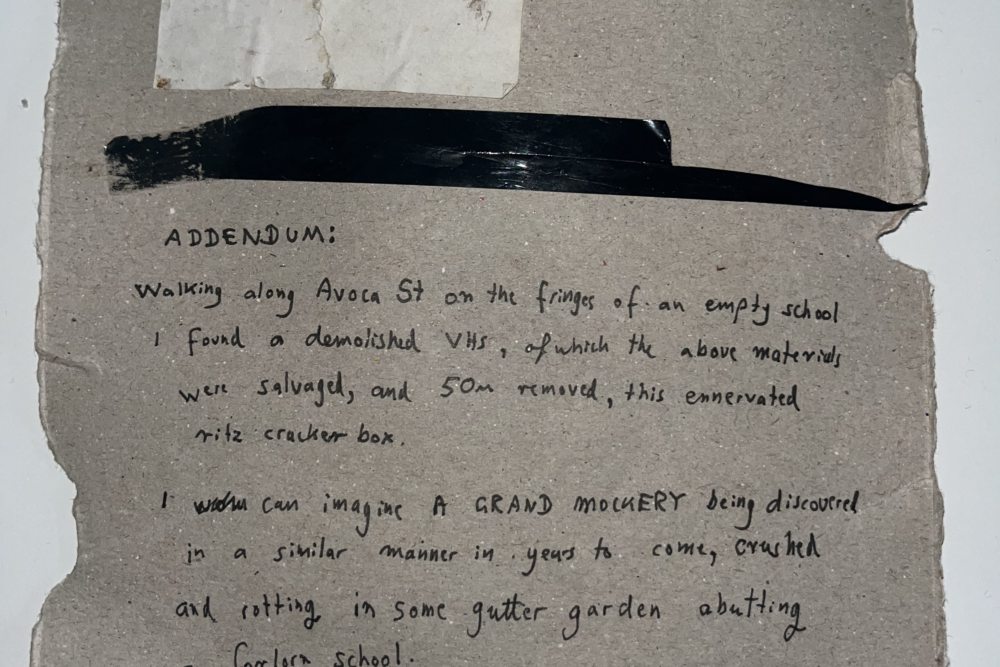 ADDENDUM:
Walking along Avoca St on the fringes of an empty school
I found a demolished VHS, of which the above materials
were salvaged, and 50m removed, this ennervated
ritz cracker box.
I can imagine A GRAND MOCKERY being discovered
in a similar manner in years to come, crushed
and rotting in some gutter garden abutting
forlorn school.